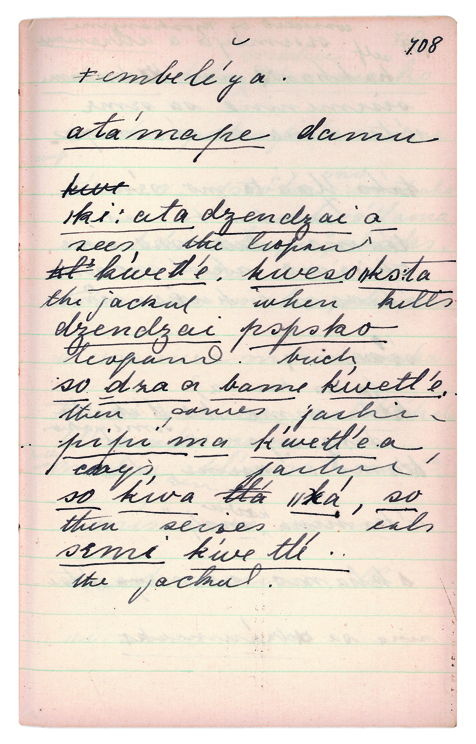 708
ŧembelé'ya.
atámape damu
ki: ata dzendzai a
sees the leopard
kwetl'e. kweso ksta
the jackal when kills
dzendzai pspsko
leopard buck
so dza a bame kwetl'e.
then comes
pipi ma kwetl'e a
so kwa ǁká, so
then seizes eats
semi kwe tlé..
the jackal.